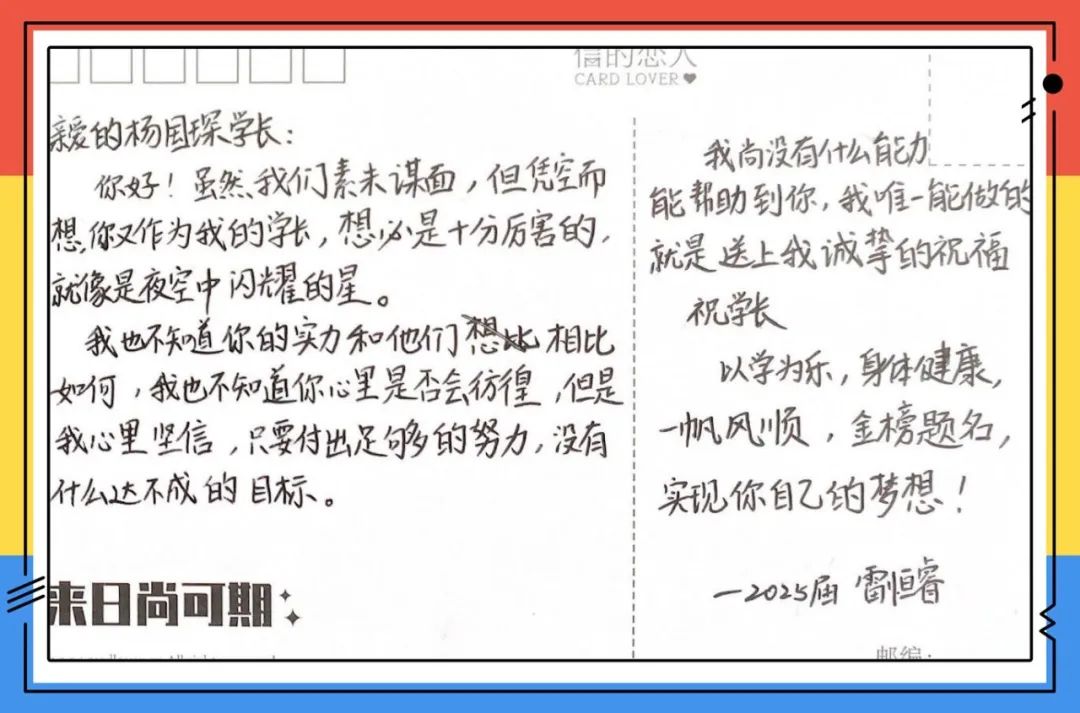 信的恋人
CARD LOVER
亲爱的杨国琛学长：
你好！虽然我们素未谋面，但凭空而
想，你又作为我的学长，想必是十分厉害的，
就像是夜空中闪耀的星。
我也不知道你的实力和他们想比相比
如何，我也不知道你心里是否会彷徨，但是
我心里坚信，只要付出足够多的努力，没有
什么达不成的目标。
来日尚可期
我尚没有什么能力
能帮助到你，我唯一能做的
就是送上我诚挚的祝福
祝学长
以学为乐，身体健康，
一帆风顺，金榜题名，
实现你自己的梦想！
—2025届 雷恒睿
邮编：